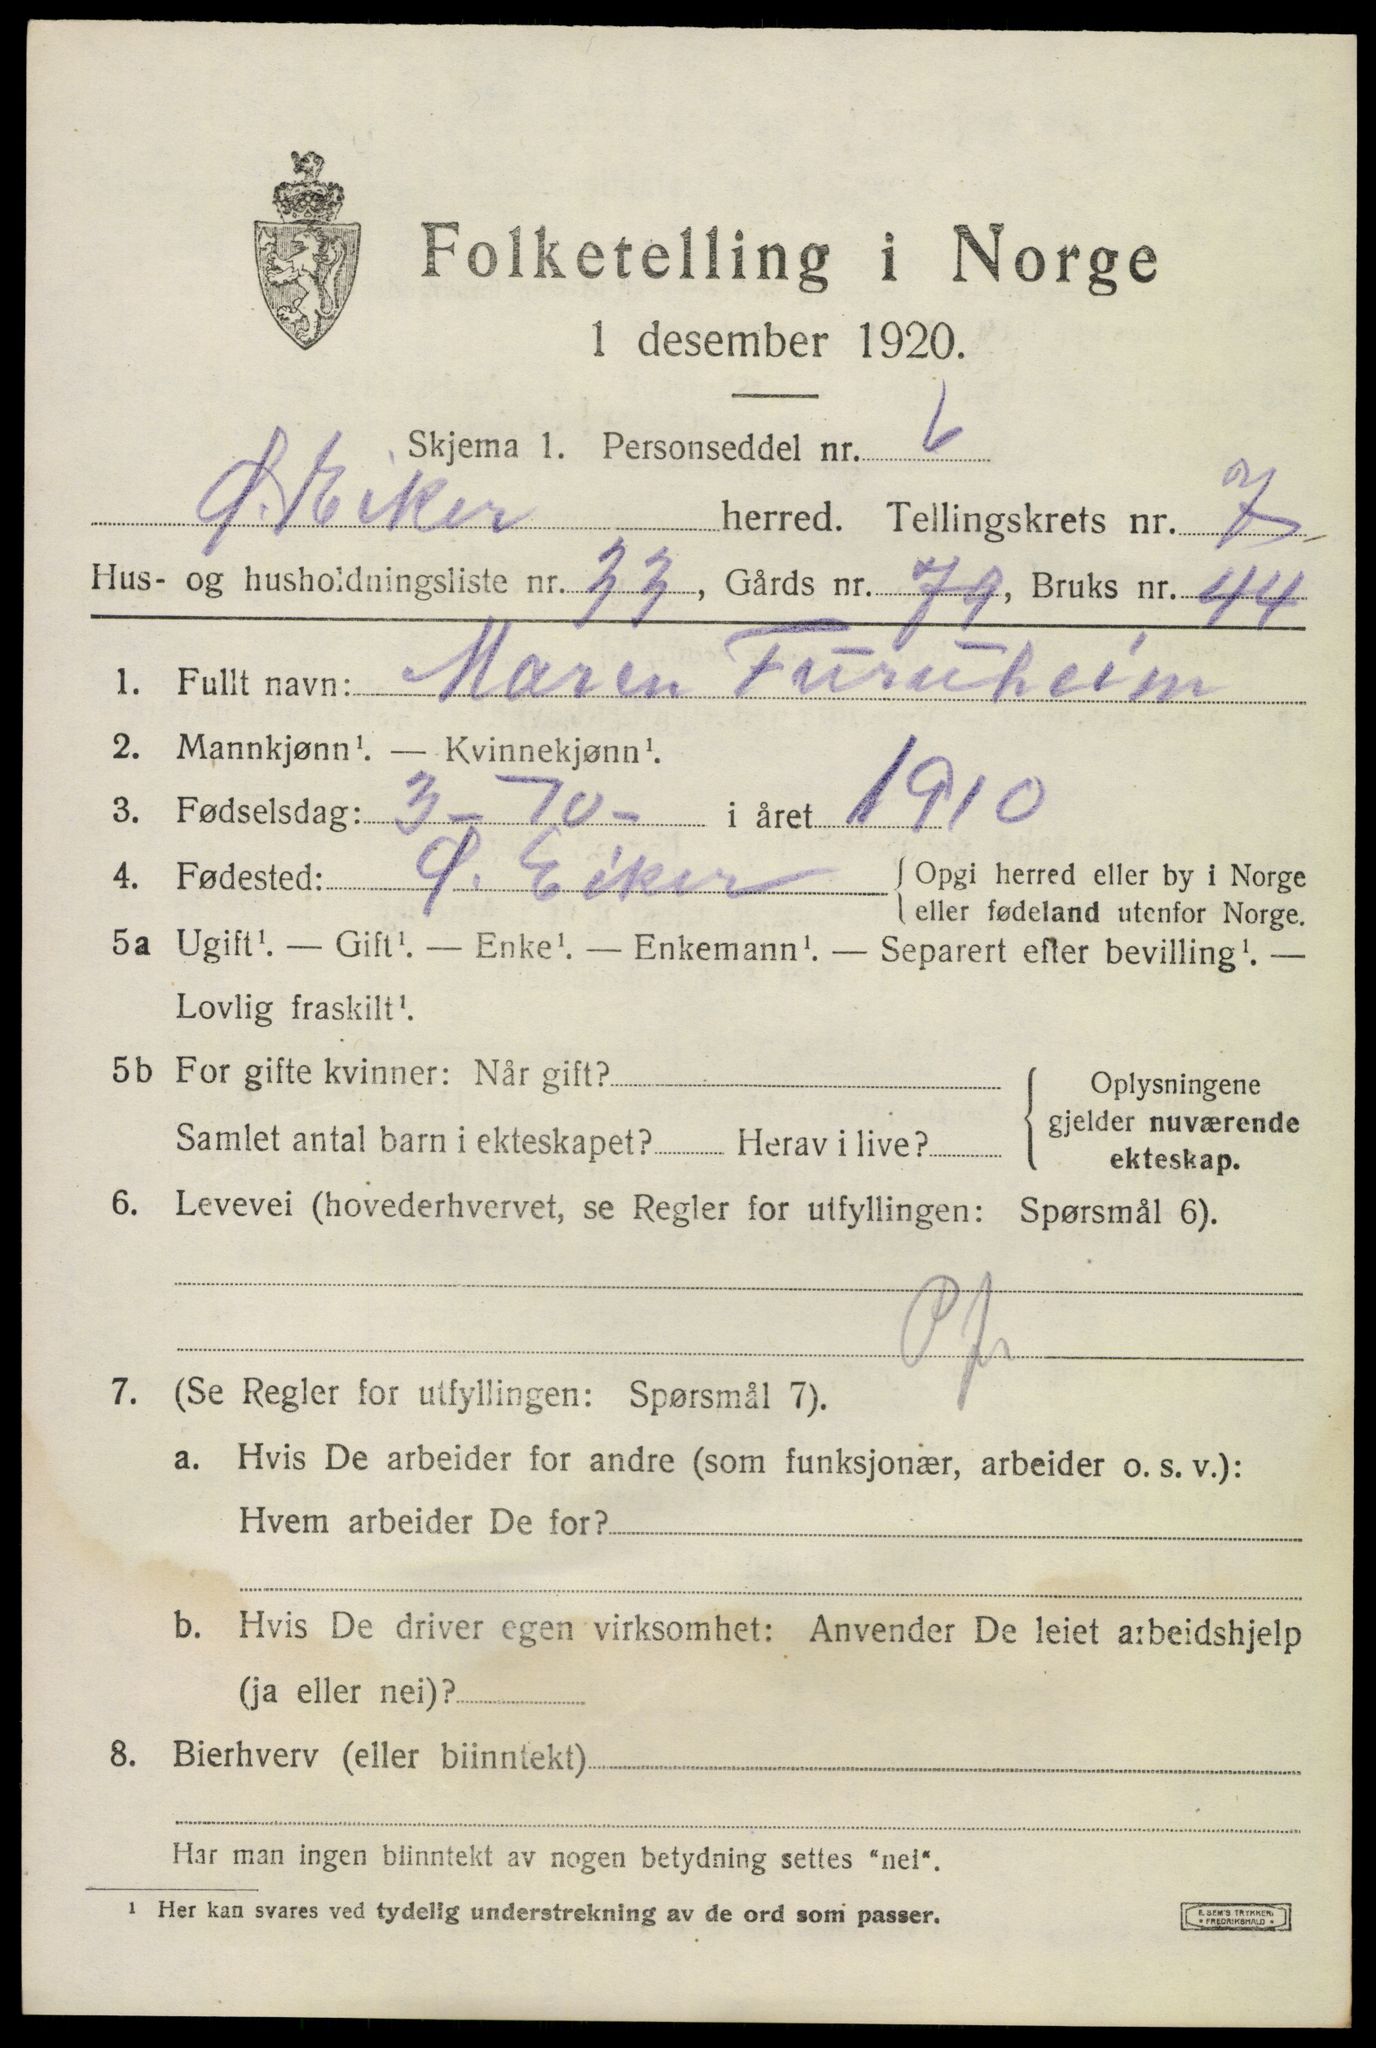 Folketelling i Norge
1 desember 1920.
Skjema 1. Personseddel nr. 6
Ø. Eiker herred. Tellingskrets nr. 7
Hus- og husholdningsliste nr. 33, Gårds nr. 79, Bruks nr. 44
1. Fullt navn: Maren Furuheim
2. Mannkjønn¹. — Kvinnekjønn¹.
3. Fødselsdag: 3-10- i året 1910
4. Fødested: Ø. Eiker { Opgi herred eller by i Norge
eller fødeland utenfor Norge.
5a Ugift¹. — Gift¹. — Enke¹. — Enkemann¹. — Separert efter bevilling¹. —
Lovlig fraskilt¹.
5b For gifte kvinner: Når gift?
Samlet antal barn i ekteskapet? Herav i live?
Oplysningene
gjelder nuværende
ekteskap.
6. Levevei (hovederhvervet, se Regler for utfyllingen: Spørsmål 6).
7. (Se Regler for utfyllingen: Spørsmål 7).
a. Hvis De arbeider for andre (som funksjonær, arbeider o. s. v.):
Hvem arbeider De for?
b. Hvis De driver egen virksomhet: Anvender De leiet arbeidshjelp
(ja eller nei)?
8. Bierhverv (eller biinntekt)
Har man ingen biinntekt av nogen betydning settes "nei".
¹ Her kan svares ved tydelig understrekning av de ord som passer.
E. SEM'S TRYKKERI
* FREDRIKSHALD *